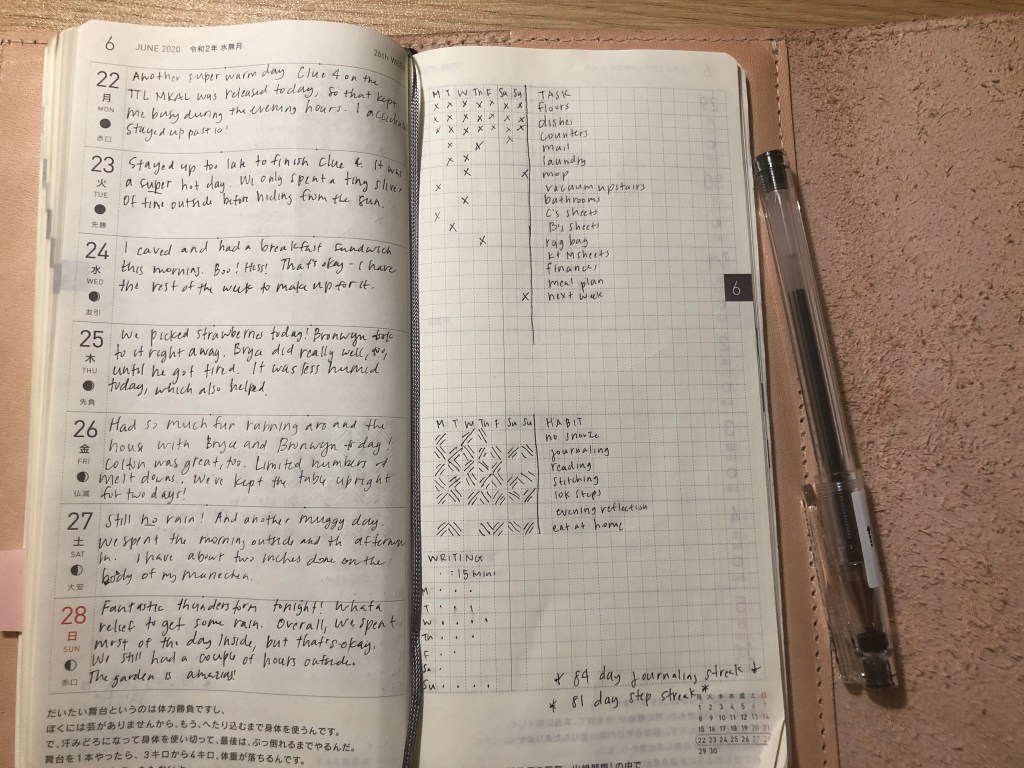 6 JUNE 2020 令和2年 水無月
26th WE
22
月
MON
赤口
Another super warm day Clue 4 on the
TTL MKAL was released today, so that kept
me busy during the evening hours. I
stayed up past 10!
23
火
TUE
先勝
Stayed up too late to finish Clue 4. It was
a super hot day. We only spent a tiny sliver
of time outside before hiding from the sun.
24
水
WED
友引
I caved and had a breakfast sandwich
this morning. Boo! Hiss! That's okay - I have
the rest of the week to make up for it.
25
木
THU
先負
We picked strawberries today! Bronwyn took
to it right away. Bryce did really well, too,
until he got tired. It was less humid
today, which also helped.
26
金
FRI
仏滅
Had so much fun running aro and the
house with Bryce and Bronwyn today!
Colton was great, too. Limited numbers of
melt downs. We've kept the table upright
for two days!
27
土
SAT
大安
Still no rain! And another muggy day.
We spent the morning outside and th afternoon
in. I have about two inches done on the
body of my
28
日
SUN
赤口
Fantastic thunderstorm tonight! What a
relief to get some rain. Overall, we spent
most of the day inside, but that's okay.
We still had a couple of hours outside.
The garden is amazing!
だいたい舞台というのは体力勝負ですし、
ぼくには芸がありませんから、もう、へたり込むまで身体を使うんです。
で、汗みどろになって身体を使い切って、最後は、ぶっ倒れるまでやるんだ。
舞台を1本やったら、3キロから4キロ、体重が落ちるんです。
M T W Th F Sa Su TASK
x x x x x x x floors
x x x x x x x dishes
x x x x x x x counters
x x mail
x x laundry
x x mop
x vacuum upstairs
x bathrooms
x C's sheets
x B's sheets
x rag bag
K+M sheets
finances
meal plan
x next week
6
M T W Th F Sa Su HABIT
no snooze
journaling
reading
stitching
10k steps
evening reflection
eat at home
WRITING
· = 15 min
M · · ·
T · · ·
W · · ·
Th · ·
F · ·
Sa · ·
Su · · · ·
* 84 day journaling streak *
* 81 day step streak *
月 火 水 木 金 土 日
1 2 3 4 5 6 7
8 9 10 11 12 13 14
15 16 17 18 19 20 21
22 23 24 25 26 27 28
29 30